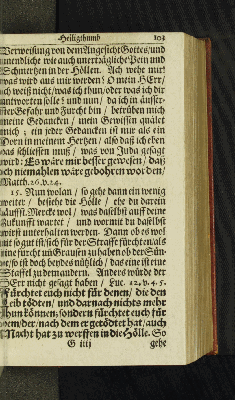 Heiligthumb 103
Verweisung von dem Angesicht Gottes/und
unendliche wie auch unerträgliche Pein und
Schmertzen in der Höllen. Ach wehe mir!
was wird aus mir werden! O mein HErr/
ich weiß nicht/was ich thun/oder was ich dir
antworten solle! und nun/ da ich in äusser-
ster Gefahr und Furcht bin/ betrüben mich
meine Gedancken/ mein Gewissen quälet
mich; ein jeder Gedancken ist nur als ein
Dorn in meinem Hertzen/ also daß ich eben
das schliessen muß/ was von Juda gesagt
wird: Es wäre mir besser gewesen/ daß
ich niemahlen wäre gebohren worden/
Matth. 26. v. 24.
15. Nun wolan/ so gehe dann ein wenig
weiter/ besiehe die Hölle/ ehe du darein
läuffst. Mercke wol/ was daselbst auf deine
Zukunfft wartet/ und wormit du daselbst
wirst unterhalten werden. Dann ob es wol
nit so gut ist/sich für der Straffe fürchten/als
eine furcht uñ Grausen zu haben ob der Sün-
de/ so ist doch beydes nützlich/ das eine ist eine
Staffel zu dem andern. Anders würde der
HErr nicht gesagt haben/ Luc. 12. v. 4. 5.
Fürchtet euch nicht für denen/ die den
Leib tödten/ und darnach nichts mehr
thun können; sondern fürchtet euch für
dem/der/ nach dem er getödtet hat/auch
Macht hat zu werffen in die Hölle. So
G iiij gehe